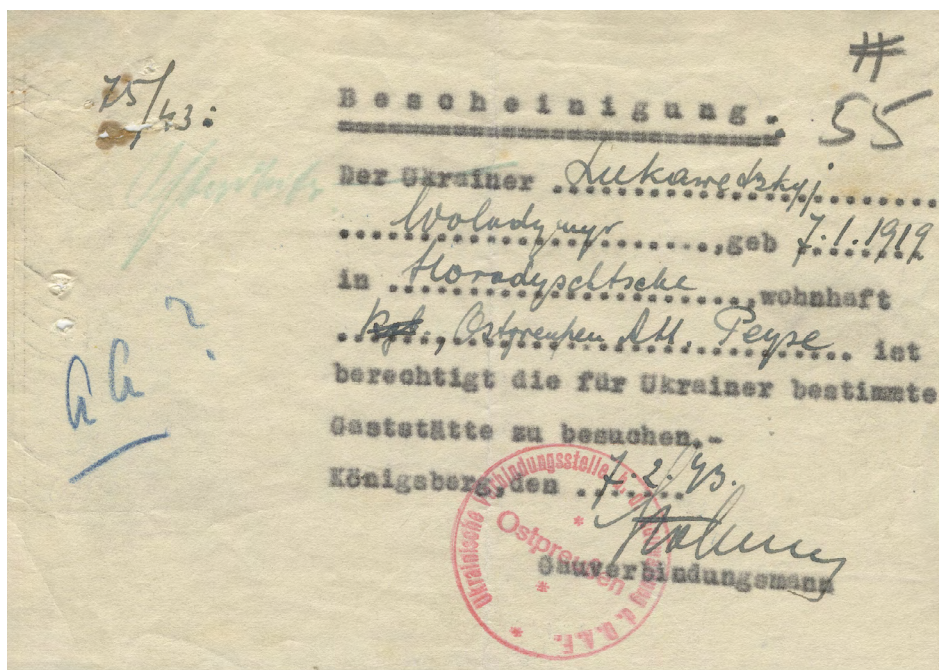 #
55
75/43:
Bescheinigung.
Der Ukrainer Lukawedzkyj
Wolodymyr, geb 7.1.1919
in Horodyschtsche, wohnhaft
Kgb., Ostpreußen Abt. Peyse ist
berechtigt die für Ukrainer bestimmte
Gaststätte zu besuchen.-
Königsberg, den 7.2.43.
Gauverbindungsmann
Ukrainische Verbindungsstelle d. D.A.F.
Ostpreußen